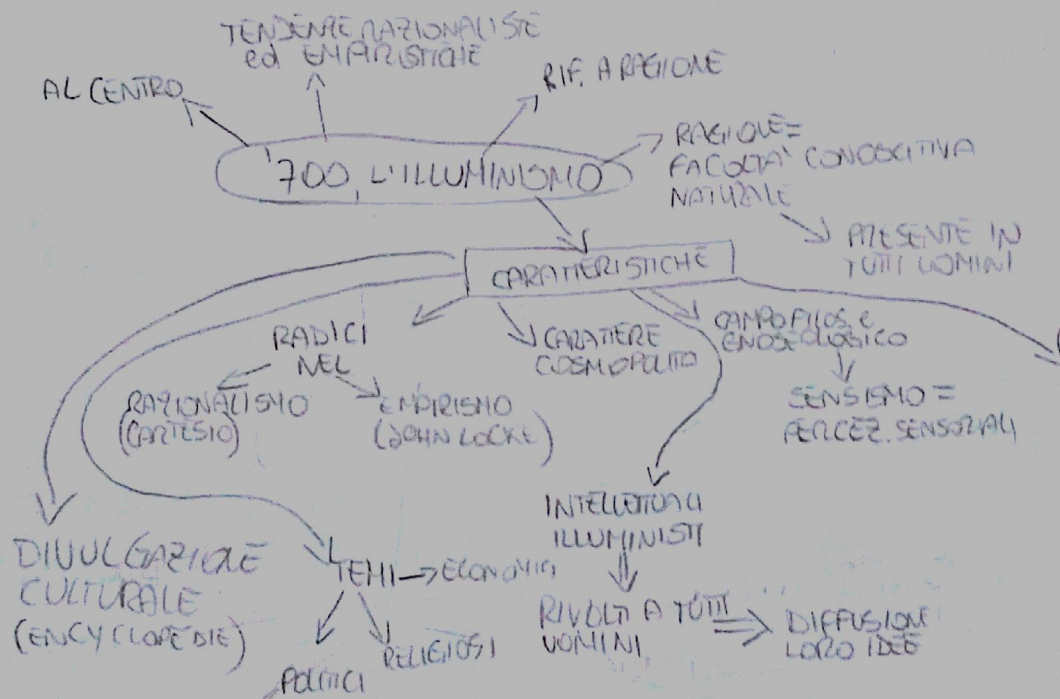 TENDENZE RAZIONALISTE
ed EMPIRISTICHE
AL CENTRO
RIF. A RAGIONE
'700, L'ILLUMINISMO
RAGIONE =
FACOLTÀ CONOSCITIVA
NATURALE
PRESENTE IN
TUTTI UOMINI
CARATTERISTICHE
RADICI
NEL
RAZIONALISMO
(CARTESIO)
EMPIRISMO
(JOHN LOCKE)
CARATTERE
COSMOPOLITO
CAMPO FILOS. e
GNOSEOLOGICO
SENSISMO =
PERCEZ. SENSORIALI
INTELLETTUALI
ILLUMINISTI
RIVOLTI A TUTTI
UOMINI
DIFFUSIONE
LORO IDEE
DIVULGAZIONE
CULTURALE
(ENCYCLOPEDIE)
TEMI
ECONOMICI
POLITICI
RELIGIOSI